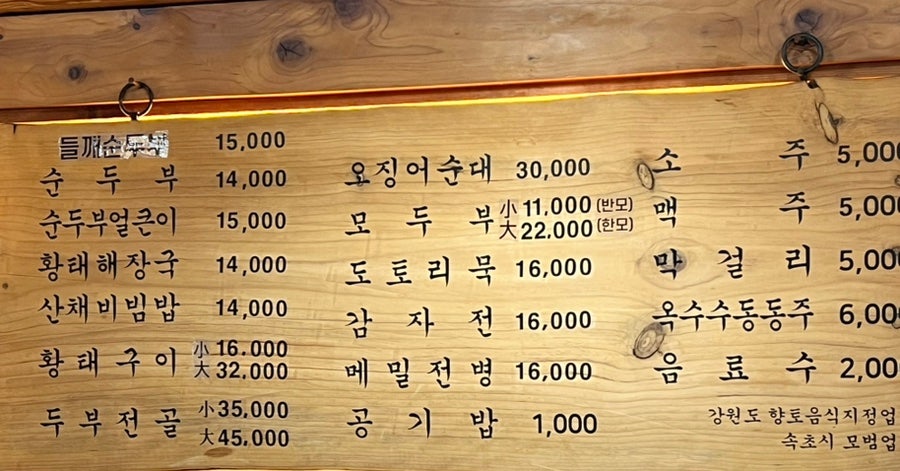 들깨순두부 15,000
순두부 14,000
순두부얼큰이 15,000
황태해장국 14,000
산채비빔밥 14,000
황태구이 小 16.000
大 32,000
두부전골 小 35,000
大 45,000
오징어순대 30,000
모두부 小 11,000 (반모)
大 22.000 (한모)
도토리묵 16,000
감자전 16,000
메밀전병 16,000
공기밥 1,000
소주 5,000
맥주 5,000
막걸리 5,000
옥수수동동주 6,00
음료수 2,00
강원도 향토음식지정업
속초시 모범업